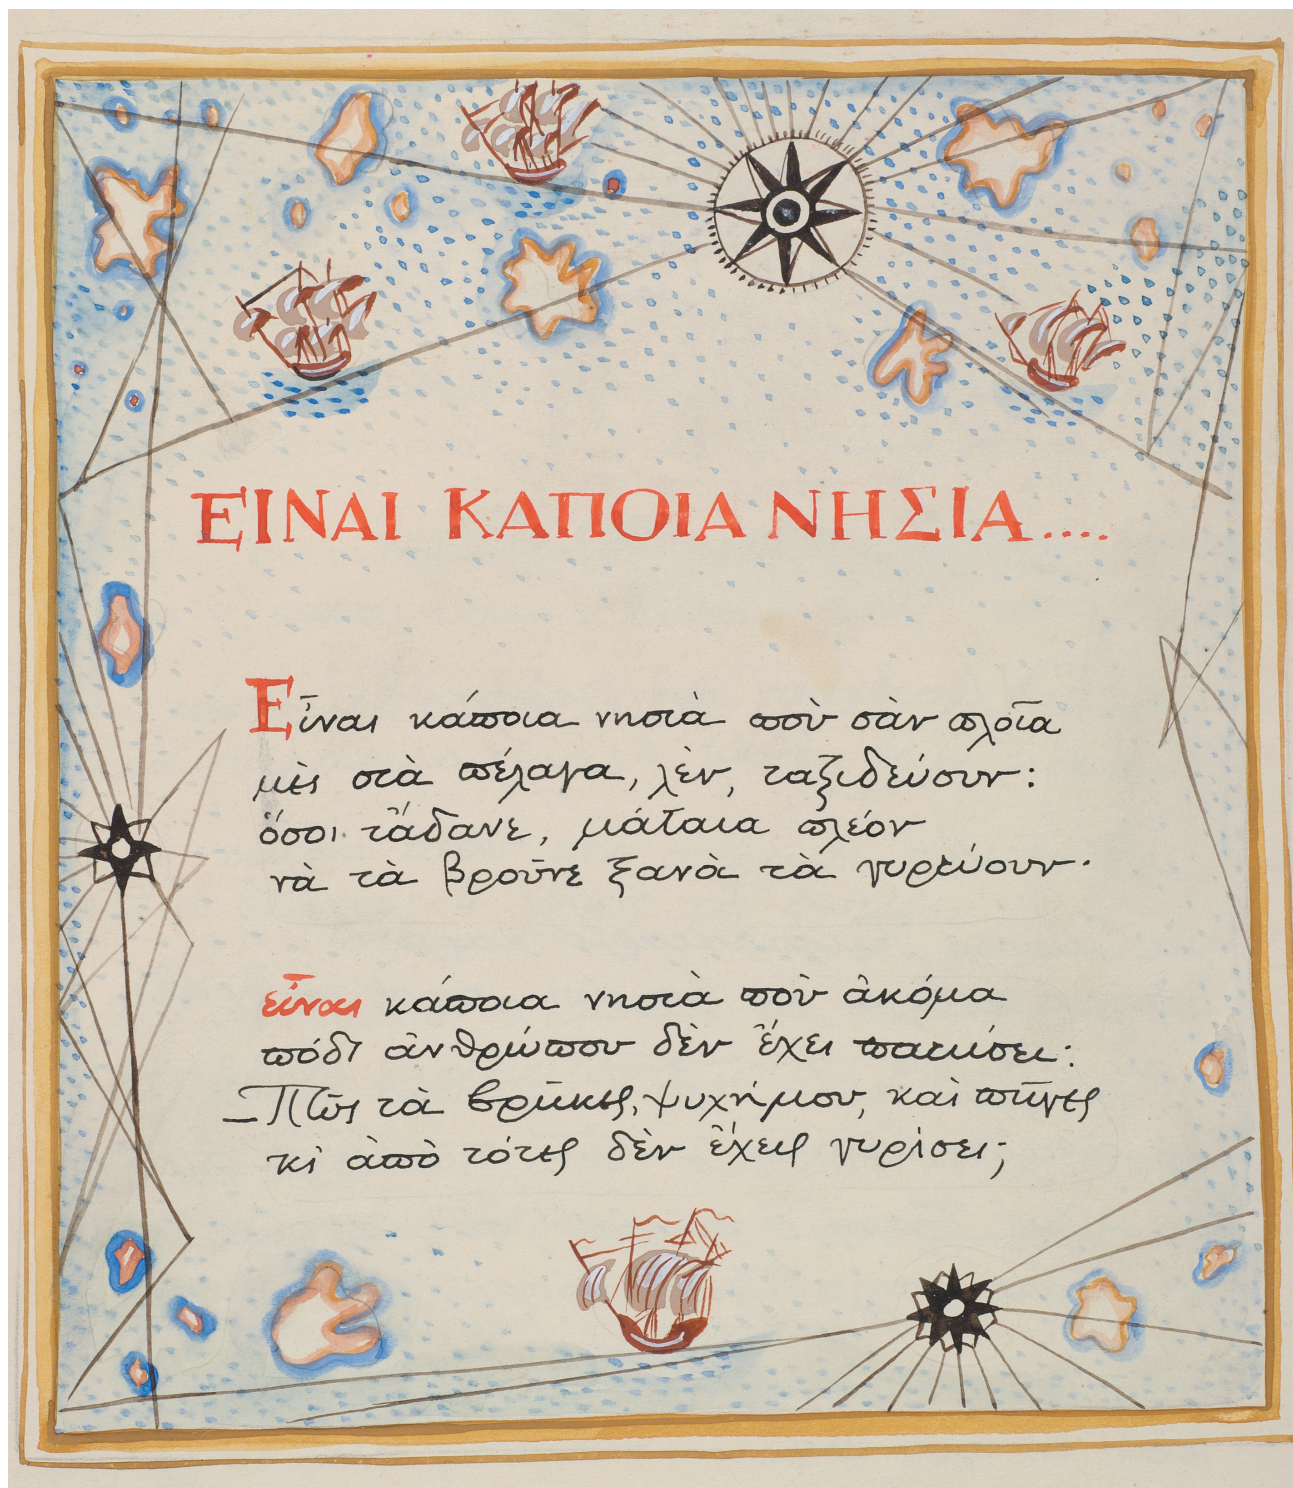 ΕΙΝΑΙ ΚΑΠΟΙΑ ΝΗΣΙΑ....
Εἶναι κάποια νησιὰ ποὺ σὰν πλοῖα
μὲς στὰ πέλαγα, λὲν, ταξιδεύουν:
ὅσοι τἄδανε, μάταια πλέον
νὰ τὰ βροῦνε ξανὰ τὰ γυρεύουν·
εἶναι κάποια νησιὰ ποὺ ἀκόμα
πόδι ἀνθρώπου δὲν ἔχει πατήσει:
—Πῶς τὰ βρῆκες, ψυχή μου, καὶ πῆγες
κι ἀπὸ τότες δὲν ἔχεις γυρίσει;